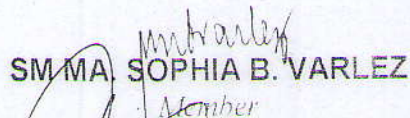 SM MA. SOPHIA B. VARLEZ
Member